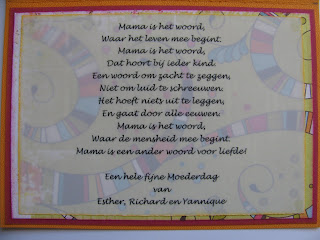 Mama is het woord,
Waar het leven mee begint.
Mama is het woord,
Dat hoort bij ieder kind.
Een woord om zacht te zeggen,
Niet om luid te schreeuwen.
Het hoeft niets uit te leggen,
En gaat door alle eeuwen.
Mama is het woord,
Waar de mensheid mee begint.
Mama is een ander woord voor liefde!
Een hele fijne Moederdag
van
Esther, Richard en Yannique